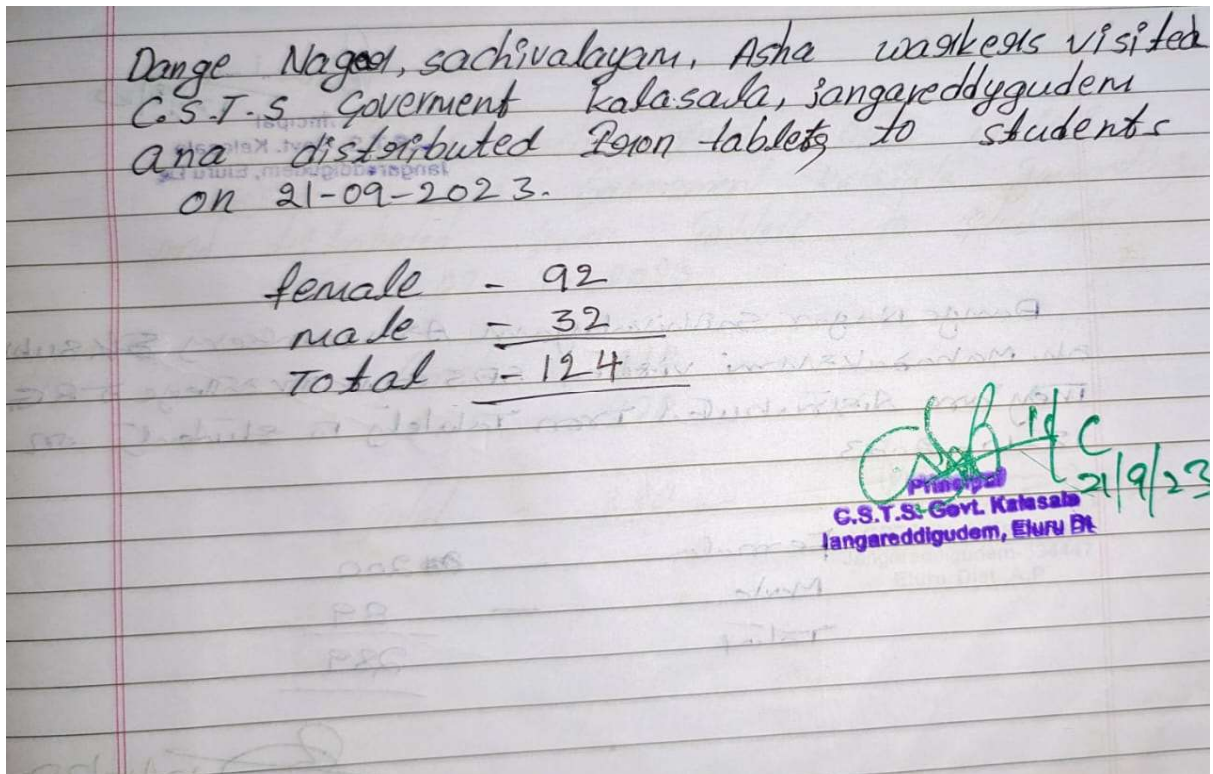 Dange Nager, sachivalayam, Asha workers visited
C.S.T.S Goverment Kalasala, jangareddygudem
and distributed Iron tablets to students
on 21-09-2023.
female - 92
male - 32
Total - 124
C
21/9/23
Principal
C.S.T.S. Govt. Kalasala
Jangareddigudem, Eluru Dt